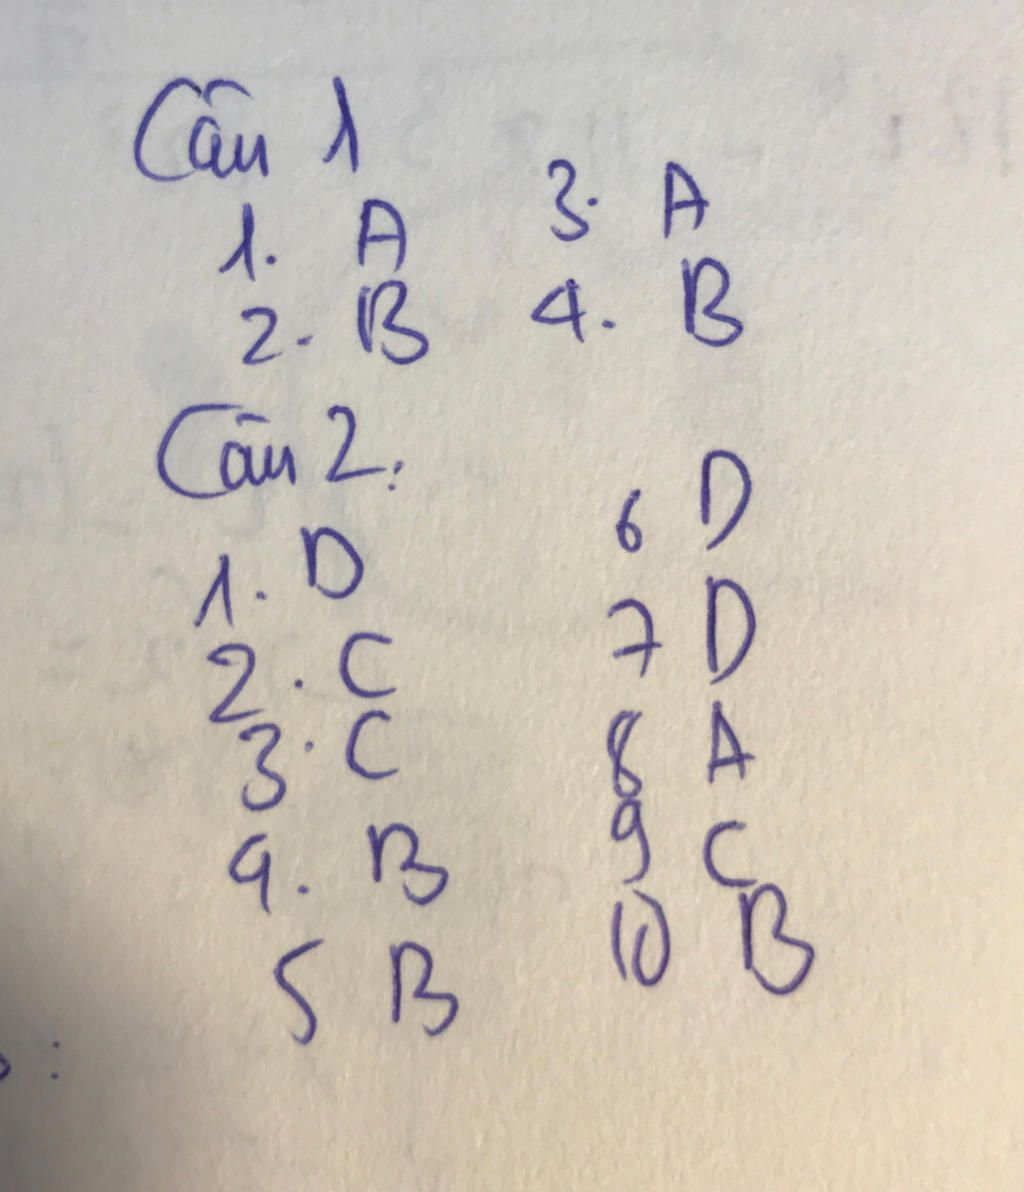 Câu 1
1. A
2. B
3. A
4. B
Câu 2:
1. D
2. C
3. C
4. B
5 B
6 D
7 D
8 A
9 C
10 B
: